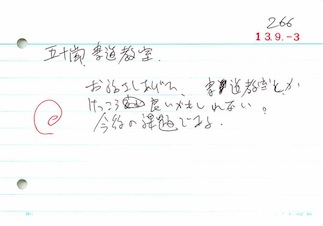 266
13.9.-3
五十嵐書道教室.
書道教室とか
けっこう良いかもしれない。
今後の課題である。